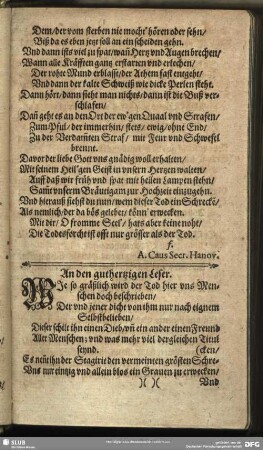 Dem/der vom sterben nie mocht' hören oder sehn/
Biß da es eben jetzt soll an ein scheiden gehn.
Und dann ists viel zu spat/wañ Hertz und Augen brechen/
Wann alle Kräfften gantz erstarren und erlöchen/
Der rohte Mund erblasst/der Athem fast entgeht/
Und dann der kalte Schweiß wie dicke Perlen steht.
Dann hört/dann sieht man nichts/dann ist die Buß ver-
schlafen/
Dañ geht es an den Ort der ew'gen Quaal und Strafen/
Zum Pful/der immerhin/stets/ewig/ohne End/
Zu der Verdamten Straf/mit Feur und Schwefel
brennt.
Davor der liebe Gott uns gnädig woll erhalten/
Mit seinem Heil'gen Geist in unsern Hertzen walten/
Auff daß wir früh und spat mit hellen Lampen stehn/
Samt unserm Bräutigam zur Hochzeit einzugehn.
Und hierauß siehst du nun/wem dieser Tod ein Schrecke/
Als nemlich/der da bös gelebet/könn' erwecken.
Mit dir/O fromme Seel'/hats aber keine noht/
Die Todesforcht ist offt nur grösser als der Tod.
f.
A. Caus Secr. Hanov.
An den guthertzigen Leser.
WJe so gräßlich wird der Tod hier uns Men-
schen doch beschrieben/
Der und jener dicht von ihm nur nach eignem
Selbstbelieben/
Dieser schilt ihn einen Dieb/uñ ein ander einen Freund
Aller Menschen; und was mehr viel dergleichen Titul
seynd. (cken/
Es neñt ihn der Stagirit den vermeinten grösten Schre-
Uns nur eintzig und allein blos ein Grauen zu erwecken/
)( )( Und
SLUB